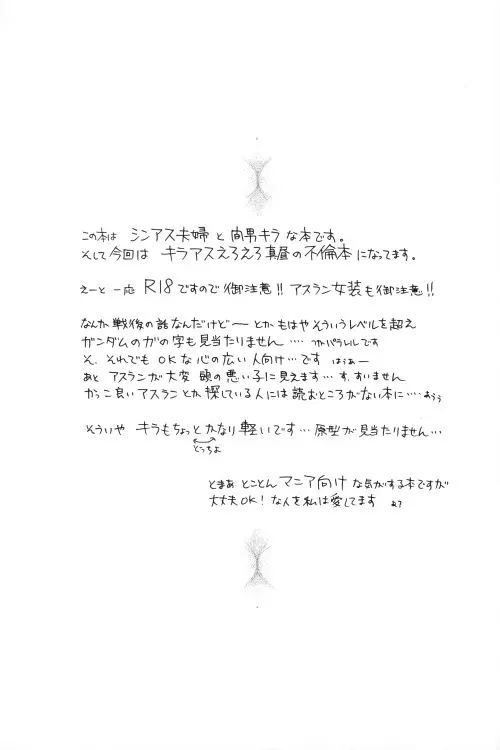 この本は シンアス夫婦 と 間男キラ な本です。
そして今回は キラアスえろえろ真昼の不倫本 になってます。
えーと 一応 R18 ですので 御注意!! アスラン女装も御注意!!
なんか 戦後の話なんだけどー とかもはやそういうレベルを超え
ガンダムのガの字も見当たりません…. つかパラレルです
そ、それでも OK な心の広い人向け…です はうぁー
あと アスランが大変 頭の悪い子に見えます… す、すいません
かっこ良いアスランとか探している人には読むところがない本に…. あうぅ
そういや キラもちょっとかなり軽いです… 原型が見当たりません…
どっちよ
とまぁ とことん マニア向け な気がする本ですが
大丈夫OK! な人を私は愛してます